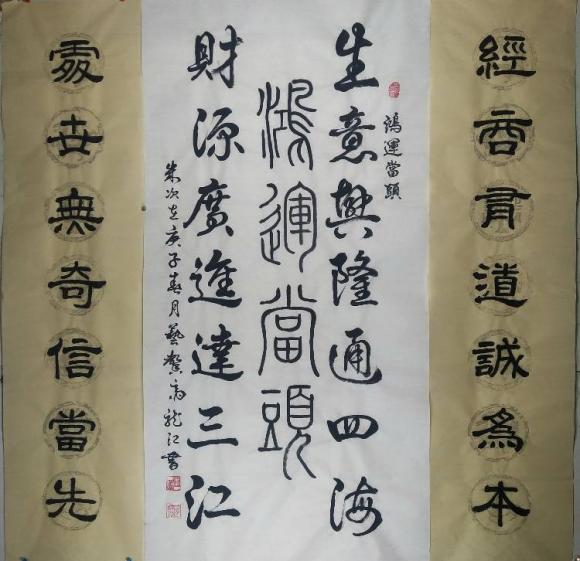 經商有道誠爲本
鴻運當頭
生意興隆通四海
鴻運當頭
財源廣進達三江
次在庚子春月藝龍江書
處世無奇信當先